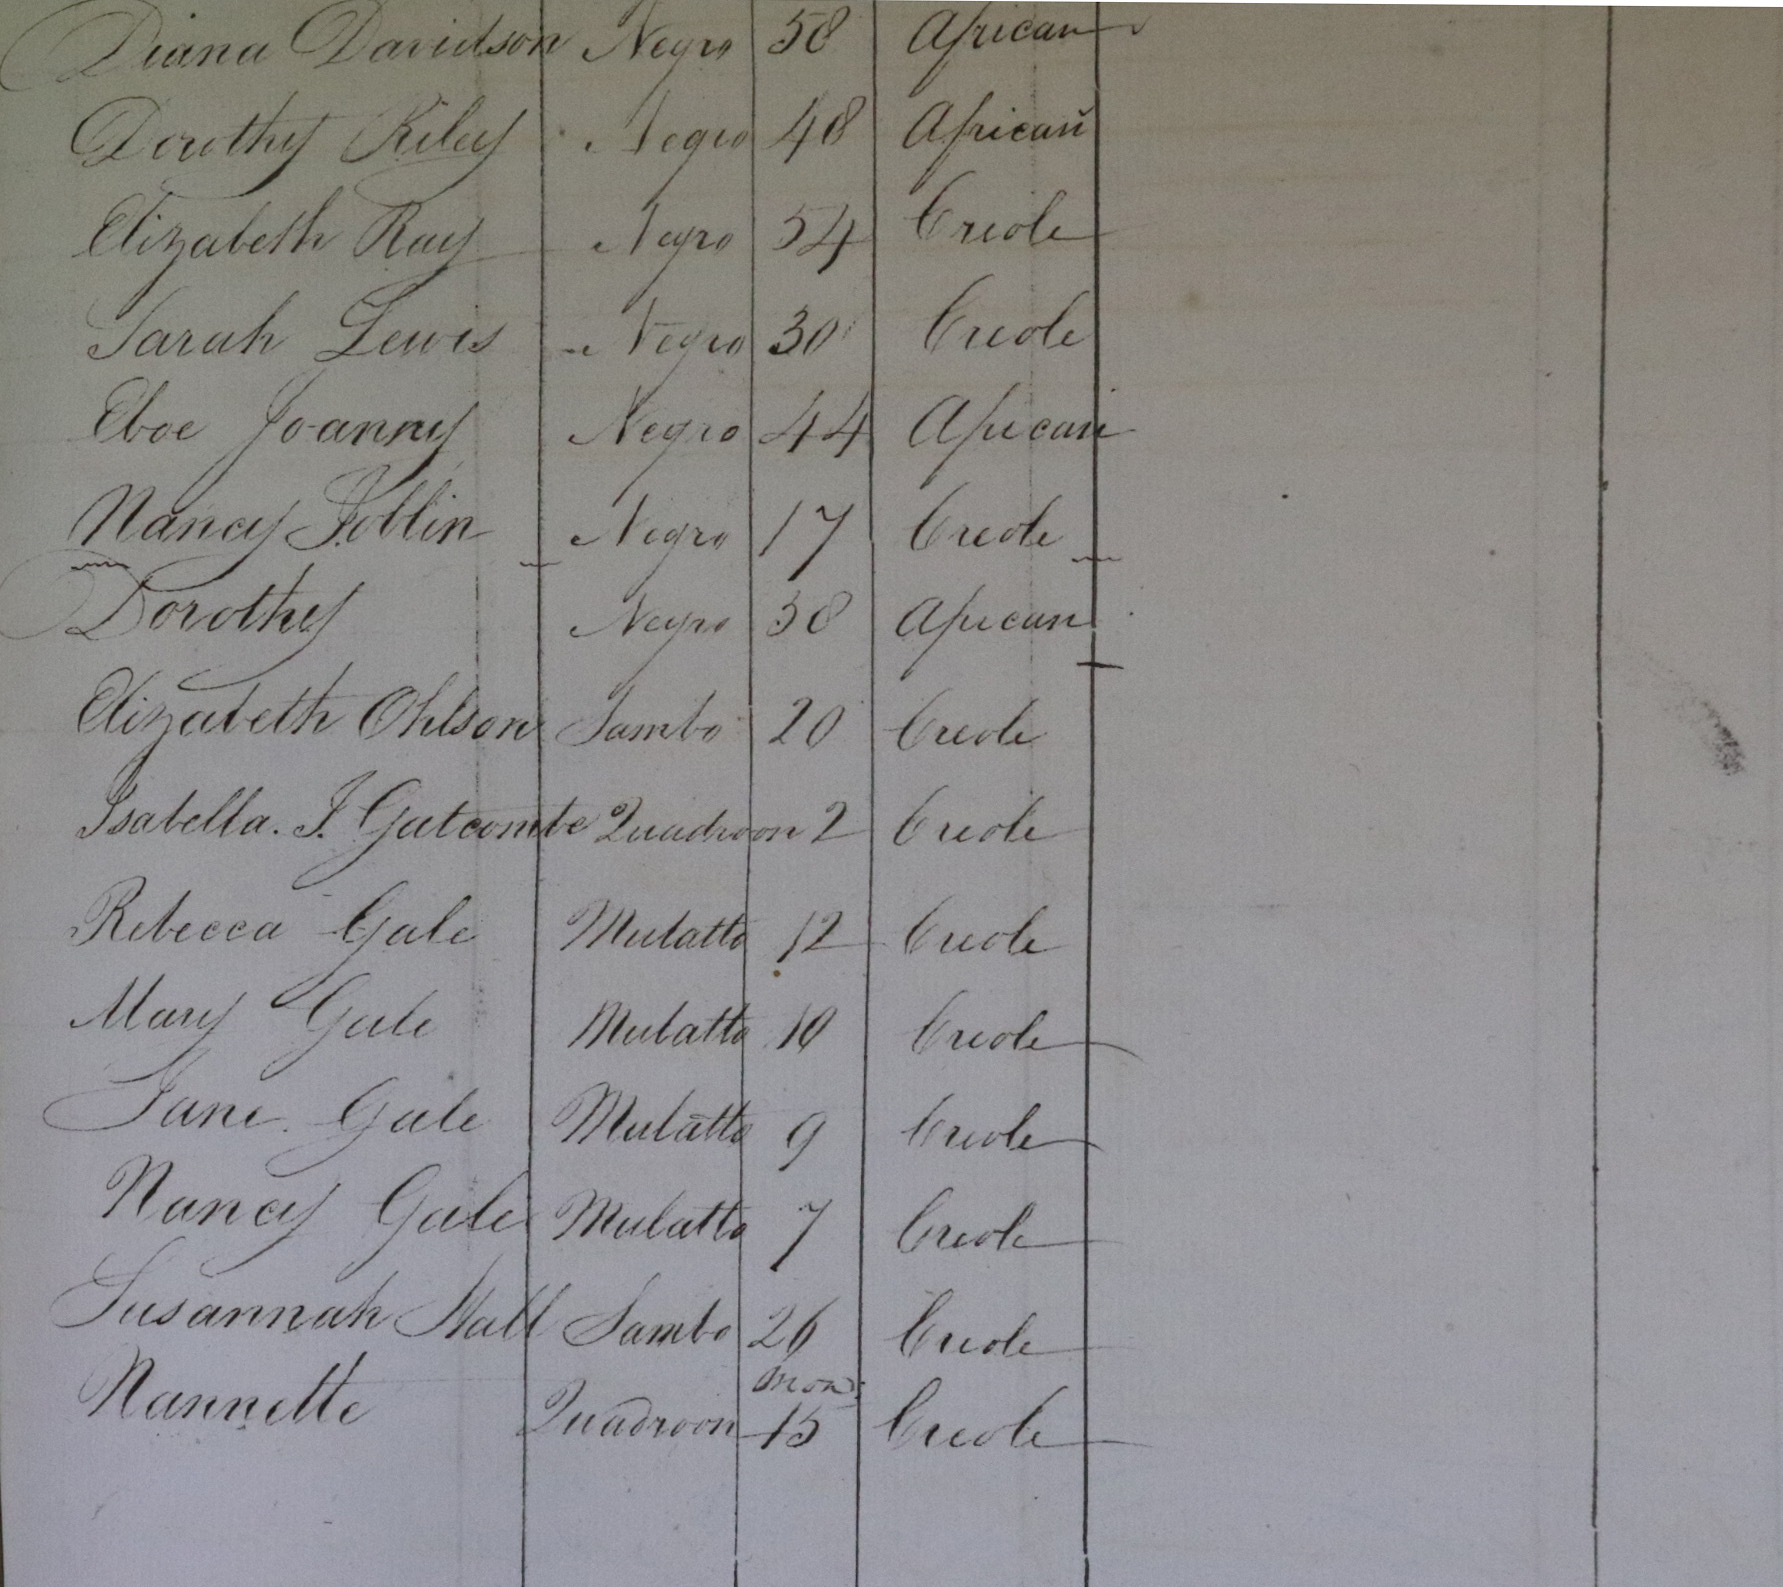 Diana Davidson Negro 58 African
Dorothy Riley Negro 48 African
Elizabeth Ray Negro 54 Creole
Sarah Lewis Negro 30 Creole
Eboe Joanny Negro 44 African
Nancy Joblin Negro 17 Creole
Dorothy Negro 58 African
Elizabeth Ohlson Sambo 20 Creole
Isabella. J. Gatcombe Quadroon 2 Creole
Rebecca Gale Mulatto 12 Creole
Mary Gale Mulatto 10 Creole
Jane Gale Mulatto 9 Creole
Nancy Gale Mulatto 7 Creole
Susannah Hall Sambo 26 Creole
Nannette Quadroon mons: 15 Creole